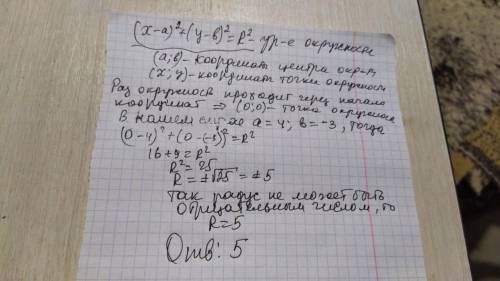 (x-a)²+(y-b)²=R²- ур-е окружности
(a;b)- координат центра окр-ти
(x; y)-координат точки окружности
Раз окружность проходит через начало
координат ⇒ (0;0)- точка окружност
В нашем случае a=4; b=-3, тогда
(0-4)²+(0-(-3))²=R²
16+9=R²
R²=25
R=±√25=±5
Так радиус не может быть
отрицательным числом, то
R=5
Отв: 5